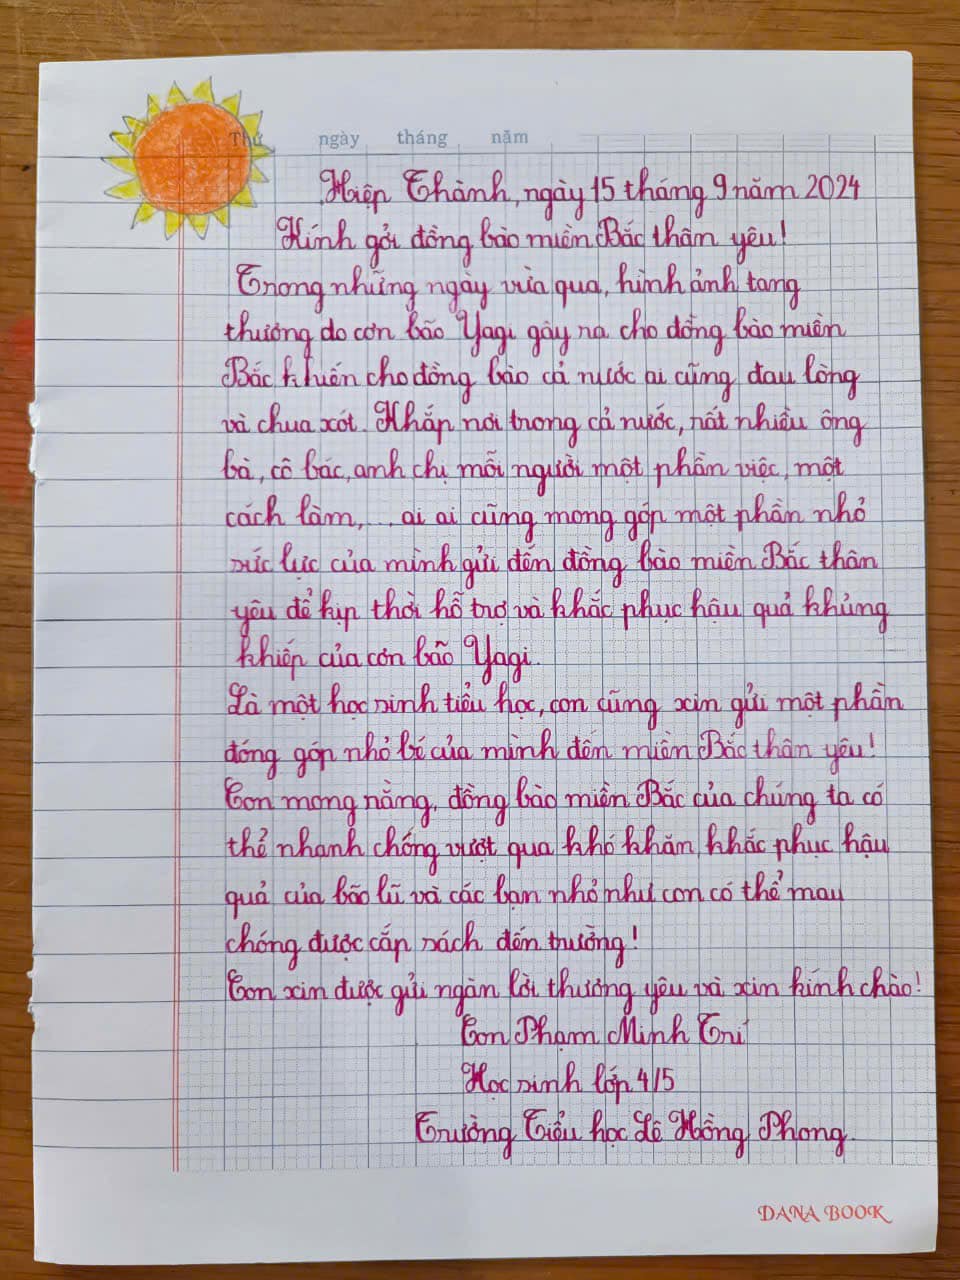 Thứ ngày tháng năm
Hiệp Thành, ngày 15 tháng 9 năm 2024
Kính gởi đồng bào miền Bắc thân yêu!
Trong những ngày vừa qua, hình ảnh tang
thương do cơn bão Yagi gây ra cho đồng bào miền
Bắc khiến cho đồng bào cả nước ai cũng đau lòng
và chua xót. Khắp nơi trong cả nước, rất nhiều ông
bà, cô bác, anh chị mỗi người một phần việc, một
cách làm,... ai ai cũng mong góp một phần nhỏ
sức lực của mình gửi đến đồng bào miền Bắc thân
yêu để kịp thời hỗ trợ và khắc phục hậu quả khủng
khiếp của cơn bão Yagi.
Là một học sinh tiểu học, con cũng xin gửi một phần
đóng góp nhỏ bé của mình đến miền Bắc thân yêu!
Con mong rằng, đồng bào miền Bắc của chúng ta có
thể nhanh chóng vượt qua khó khăn, khắc phục hậu
quả của bão lũ và các bạn nhỏ như con có thể mau
chóng được cắp sách đến trường!
Con xin được gửi ngàn lời thương yêu và xin kính chào!
Con Phạm Minh Trí
Học sinh lớp 4/5
Trường Tiểu học Lê Hồng Phong.
DANA BOOK